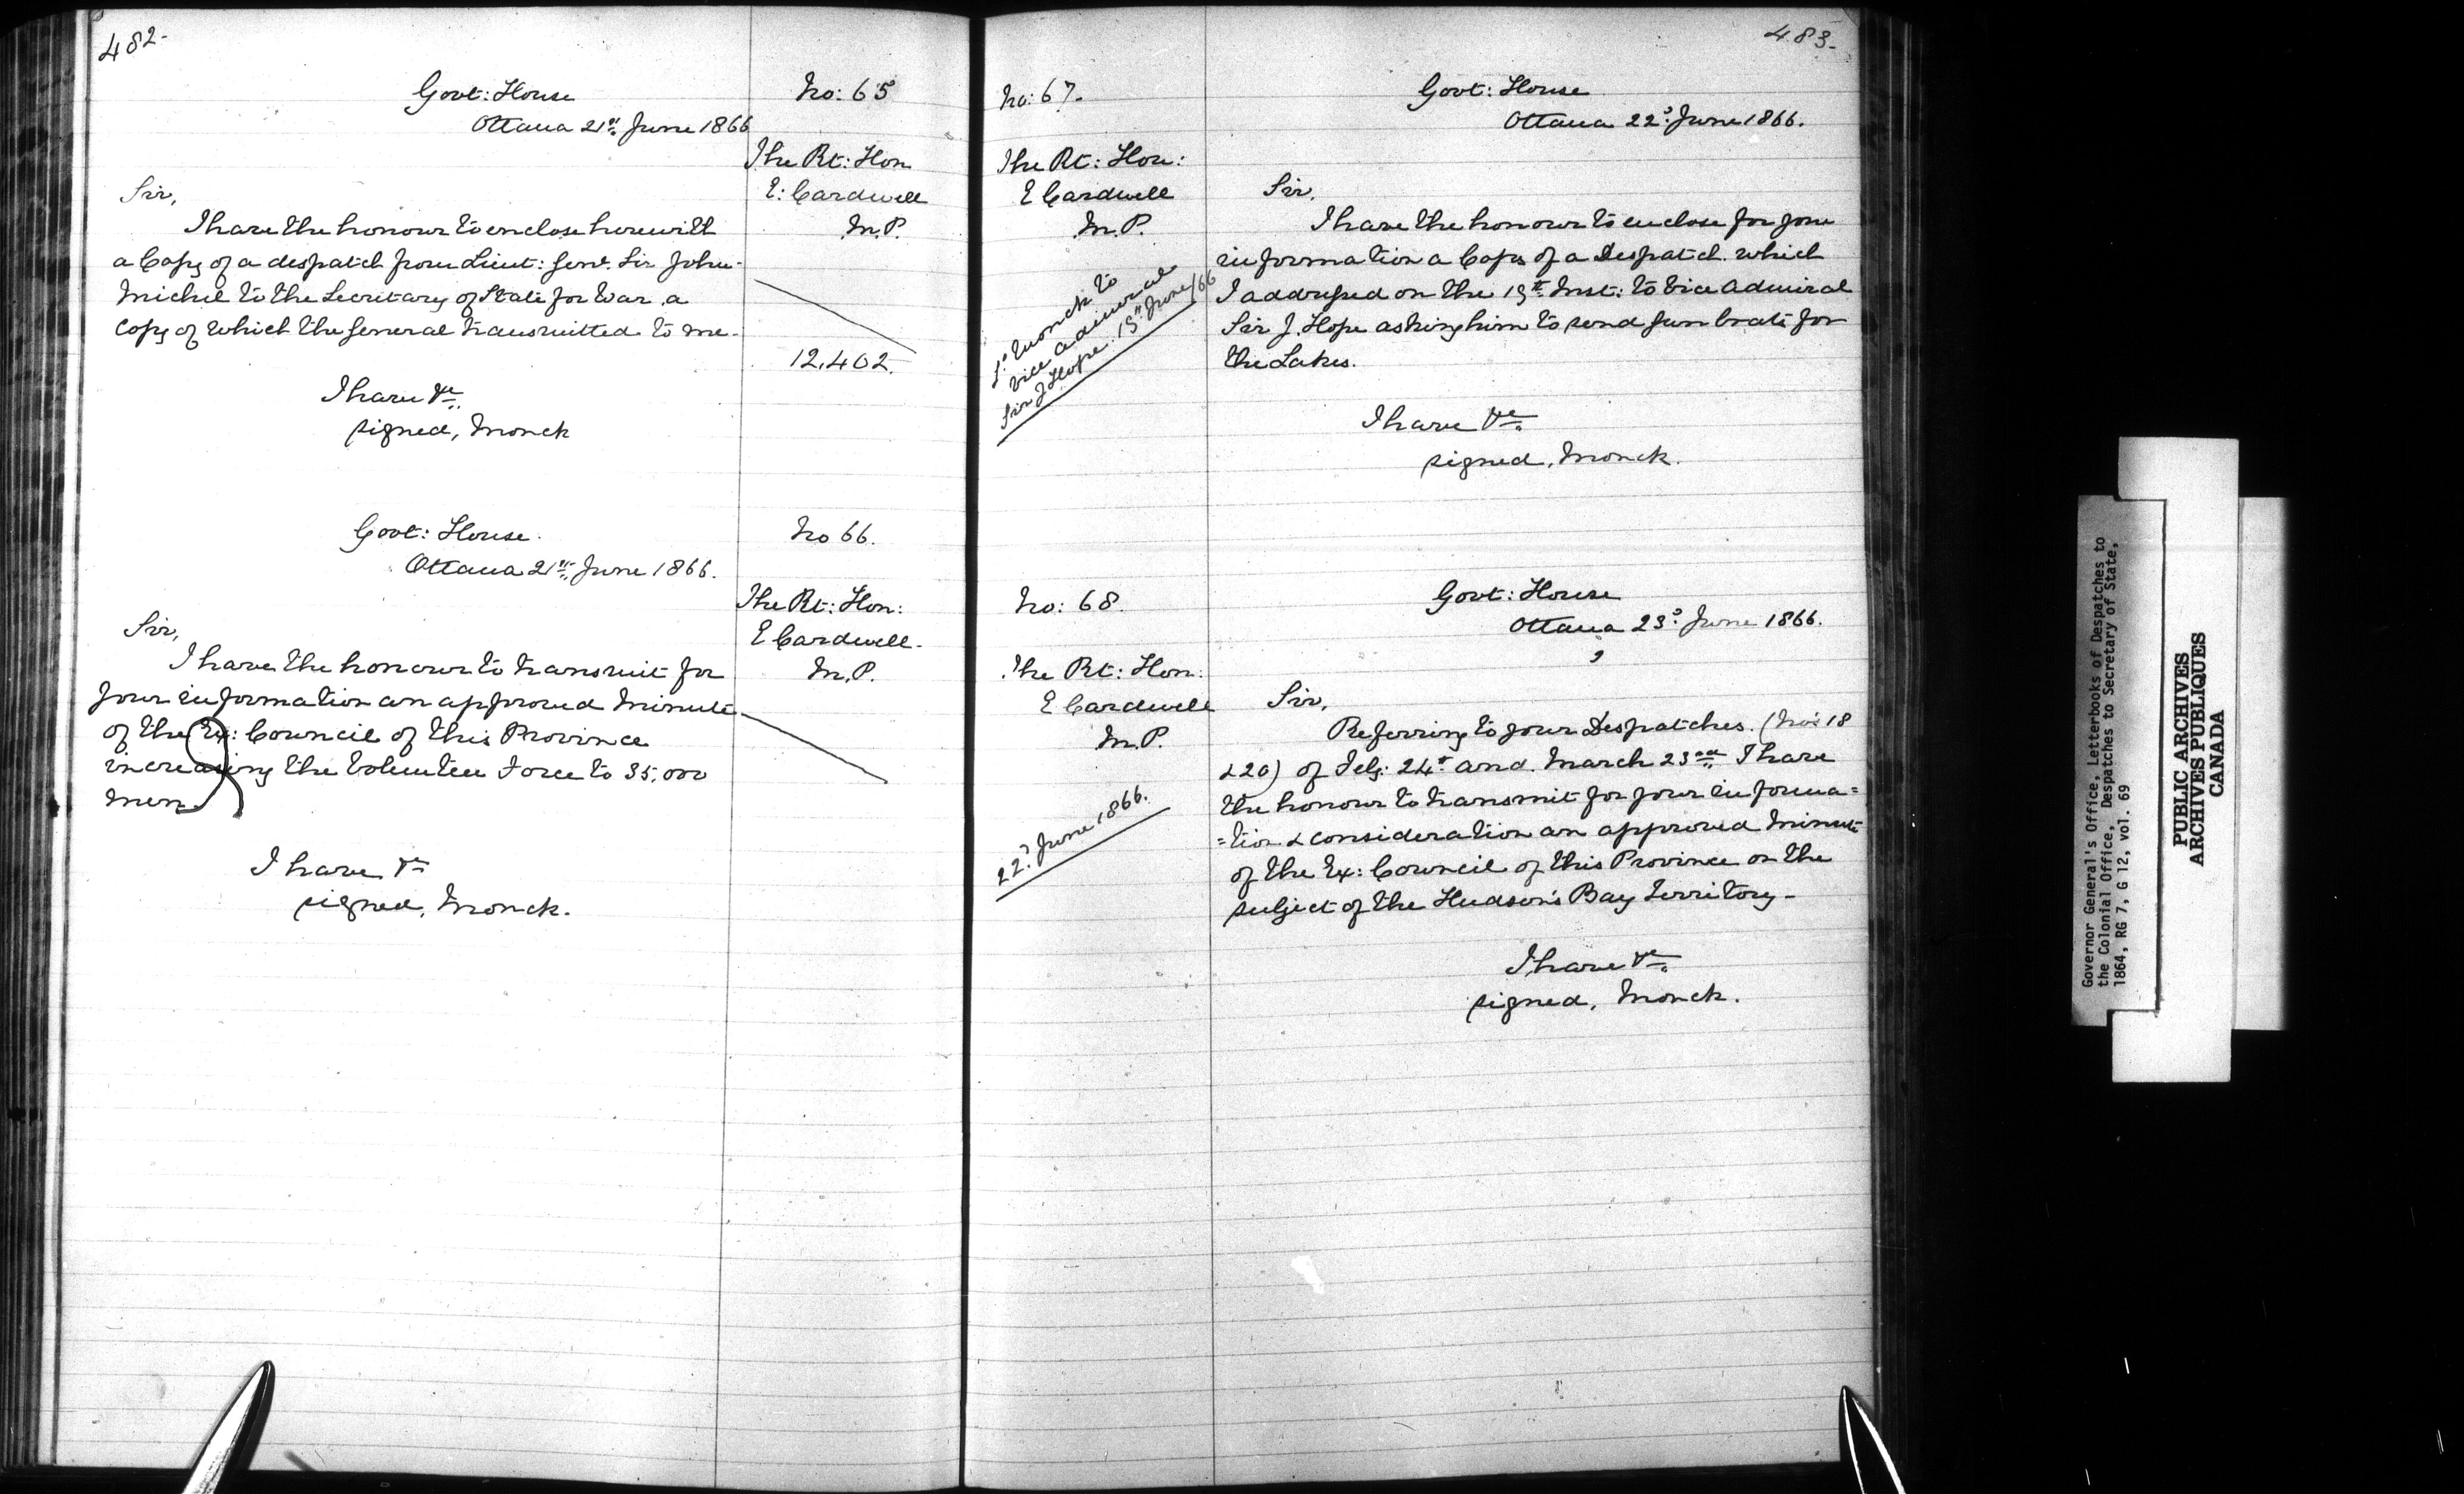 482-
Govt: House
Ottawa 21st June 1866
No: 65
The Rt: Hon
E: Cardwell
M.P.
Sir,
I have the honour to enclose herewith
a Copy of a despatch from Lieut: Genl. Sir John
Michel to the Secretary of State for War, a
copy of which the General transmitted to me-
12,402.
I have &c
signed, Monck
Govt: House.
Ottawa 21st June 1866.
No 66.
The Rt: Hon:
E Cardwell.
M.P.
Sir,
I have the honour to transmit for
your information an approved Minute
of the Ex: Council of this Province
increasing the Volunteer Force to 35,000
men
I have &c
signed, Monck.
483-
No: 67.
The Rt: Hon:
E Cardwell
M.P.
Ld Monck to
Vice Admiral
Sir J Hope. 19th June/66
Govt: House
Ottawa 22d: June 1866.
Sir,
I have the honour to enclose for your
information a Copy of a Despatch which
I addressed on the 19th Inst: to Vice Admiral
Sir J. Hope asking him to send gun boats for
the Lakes.
I have &c
signed, Monck.
No: 68.
The Rt: Hon:
E Cardwell
M.P.
22d June 1866.
Govt: House
Ottawa 23d: June 1866.
Sir,
Referring to your Despatches. (No's 18
& 20) of Feby: 24th and March 23rd I have
the honour to transmit for your informa=
=tion & consideration an approved Minute
of the Ex: Council of this Province on the
subject of the Hudson's Bay Territory-
I have &c
signed, Monck.
Governor General's Office, Letterbooks of Despatches to
the Colonial Office, Despatches to Secretary of State,
1864, RG 7, G 12, vol. 69
PUBLIC ARCHIVES
ARCHIVES PUBLIQUES
CANADA